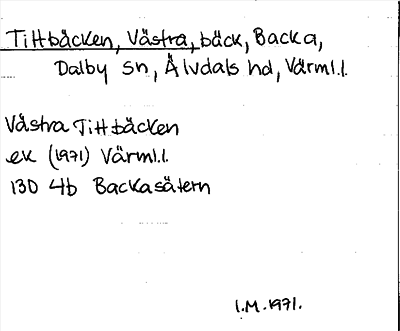 Tittbäcken, Västra, bäck, Backa,
Dalby sn, Älvdals hd, Värml.l.
Västra Tittbäcken
ek (1971) Värml.l.
13D 4b Backasätern
I.M. 1971.